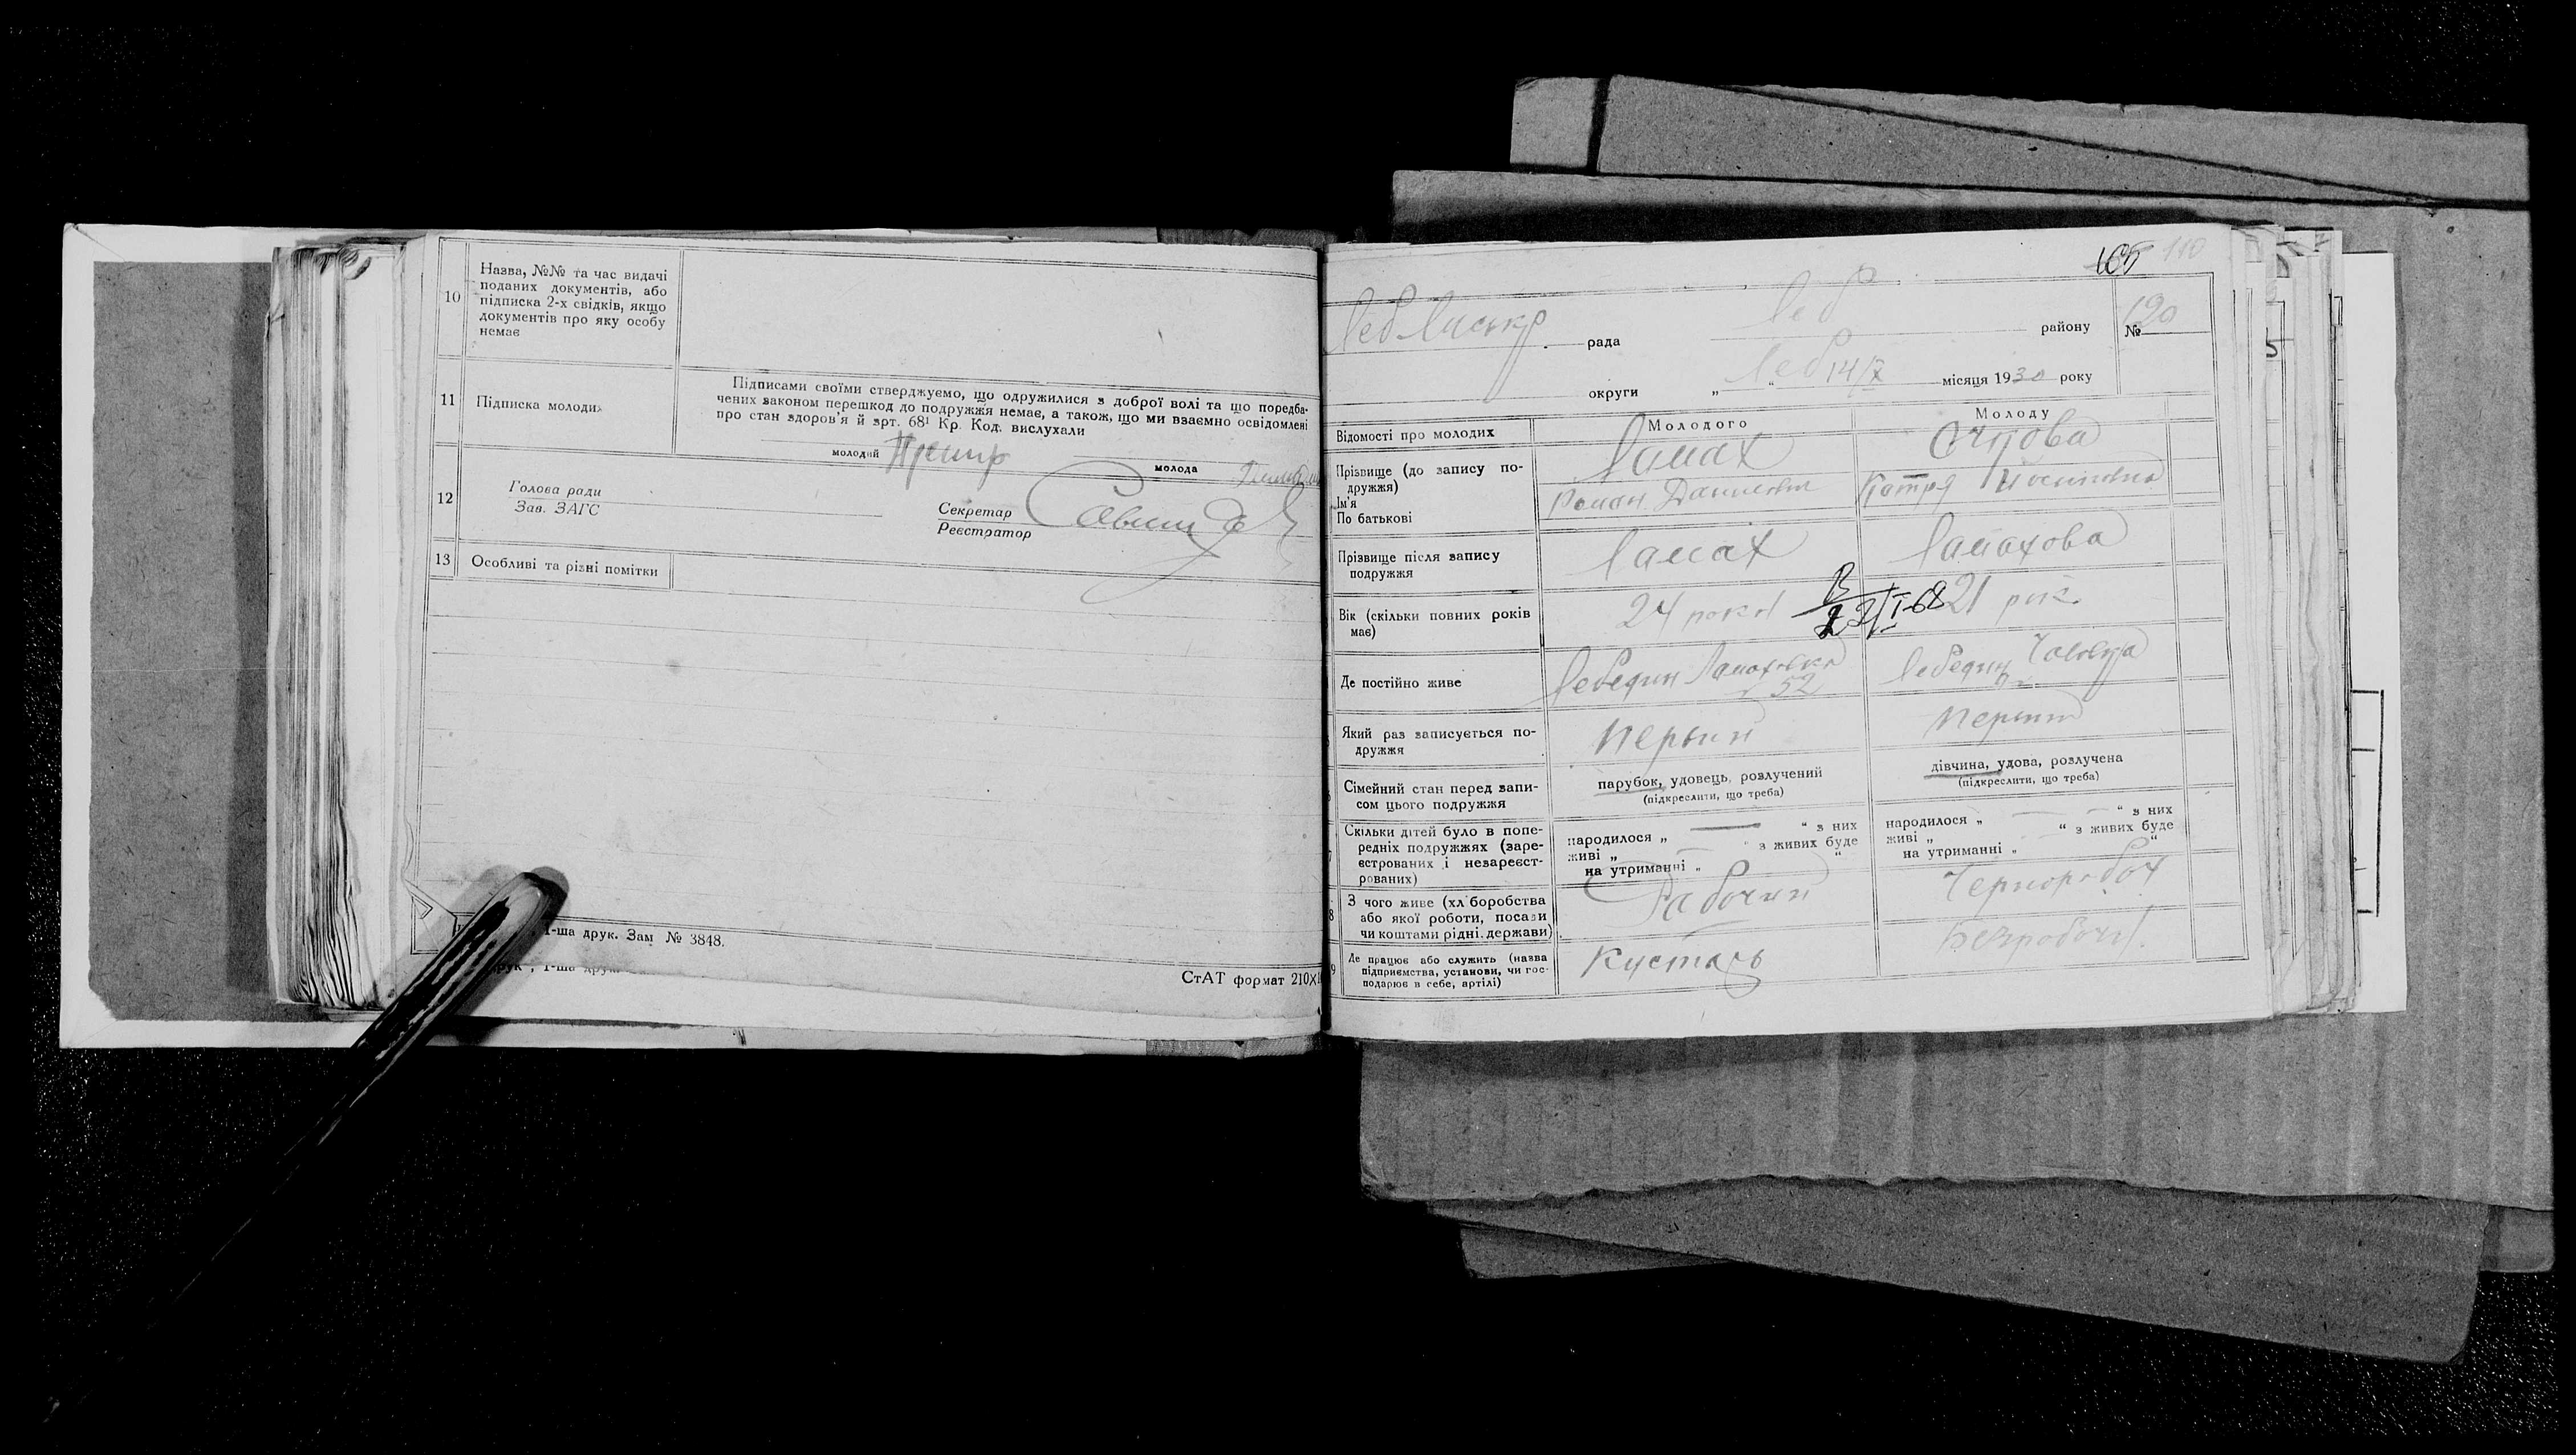 10
Назва, №№ та час видачі
поданих документів, або
підписка 2-х свідків, якщо
документів про яку особу
немає
11
Підписка молодих
Підписами своїми стверджуємо, що одружилися з доброї волі та що передба-
чених законом перешкод до подружжя немає, а також, що ми взаємно освідомлені
про стан здоров'я й арт. 68¹ Кр. Код. вислухали
молодий
молода
12
Голова ради
Зав. ЗАГС
Секретар
Реєстратор
13
Особливі та різні помітки
1-ша друк. Зам № 3848.
СтАТ формат 210×
105 110
Леб рада
Леб району
№ 190
округи „ Леб 14/X місяця 1930 року
Відомості про молодих
Молодого
Молоду
Прізвище (до запису по-
дружжя)
Ім'я
По батькові
Ламах
Роман Данилович
Катря
Прізвище після запису
подружжя
Ламах
Ламахова
Вік (скільки повних років
має)
24 роки
21 рік
Де постійно живе
Лебедин Ламаховка
52
Лебедин
Який раз записується по-
дружжя
Первий
Первий
Сімейний стан перед запи-
сом цього подружжя
парубок, удовець, розлучений
(підкреслити, що треба)
дівчина, удова, розлучена
(підкреслити, що треба)
Скільки дітей було в попе-
редніх подружжях (заре-
єстрованих і незареєст-
рованих)
народилося „ — “ з них
живі „ — “ з живих буде
на утриманні „ “
народилося „ — — “ з них
живі „ “ з живих буде
на утриманні „ “
8
З чого живе (хліборобства
або якої роботи, посади
чи коштами рідні. держави)
Рабочий
Чернороboч
9
Де працює або служить (назва
підприємства, установи, чи гос-
подарює в себе, артілі)
Кустарь